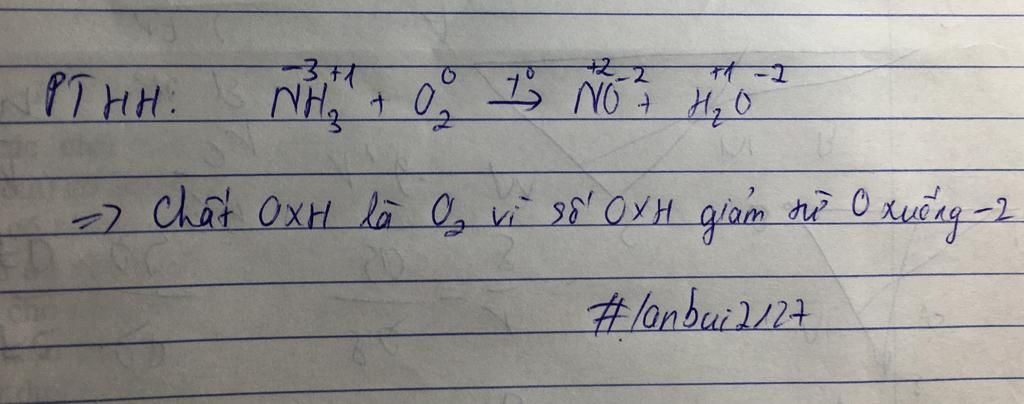 PTHH: N⁻³H⁺¹₃ + O⁰₂ –t°→ N⁺²O⁻² + H⁺¹₂O⁻²
=> Chất OXH là O₂ vì số OXH giảm từ 0 xuống -2
#lanbui2127